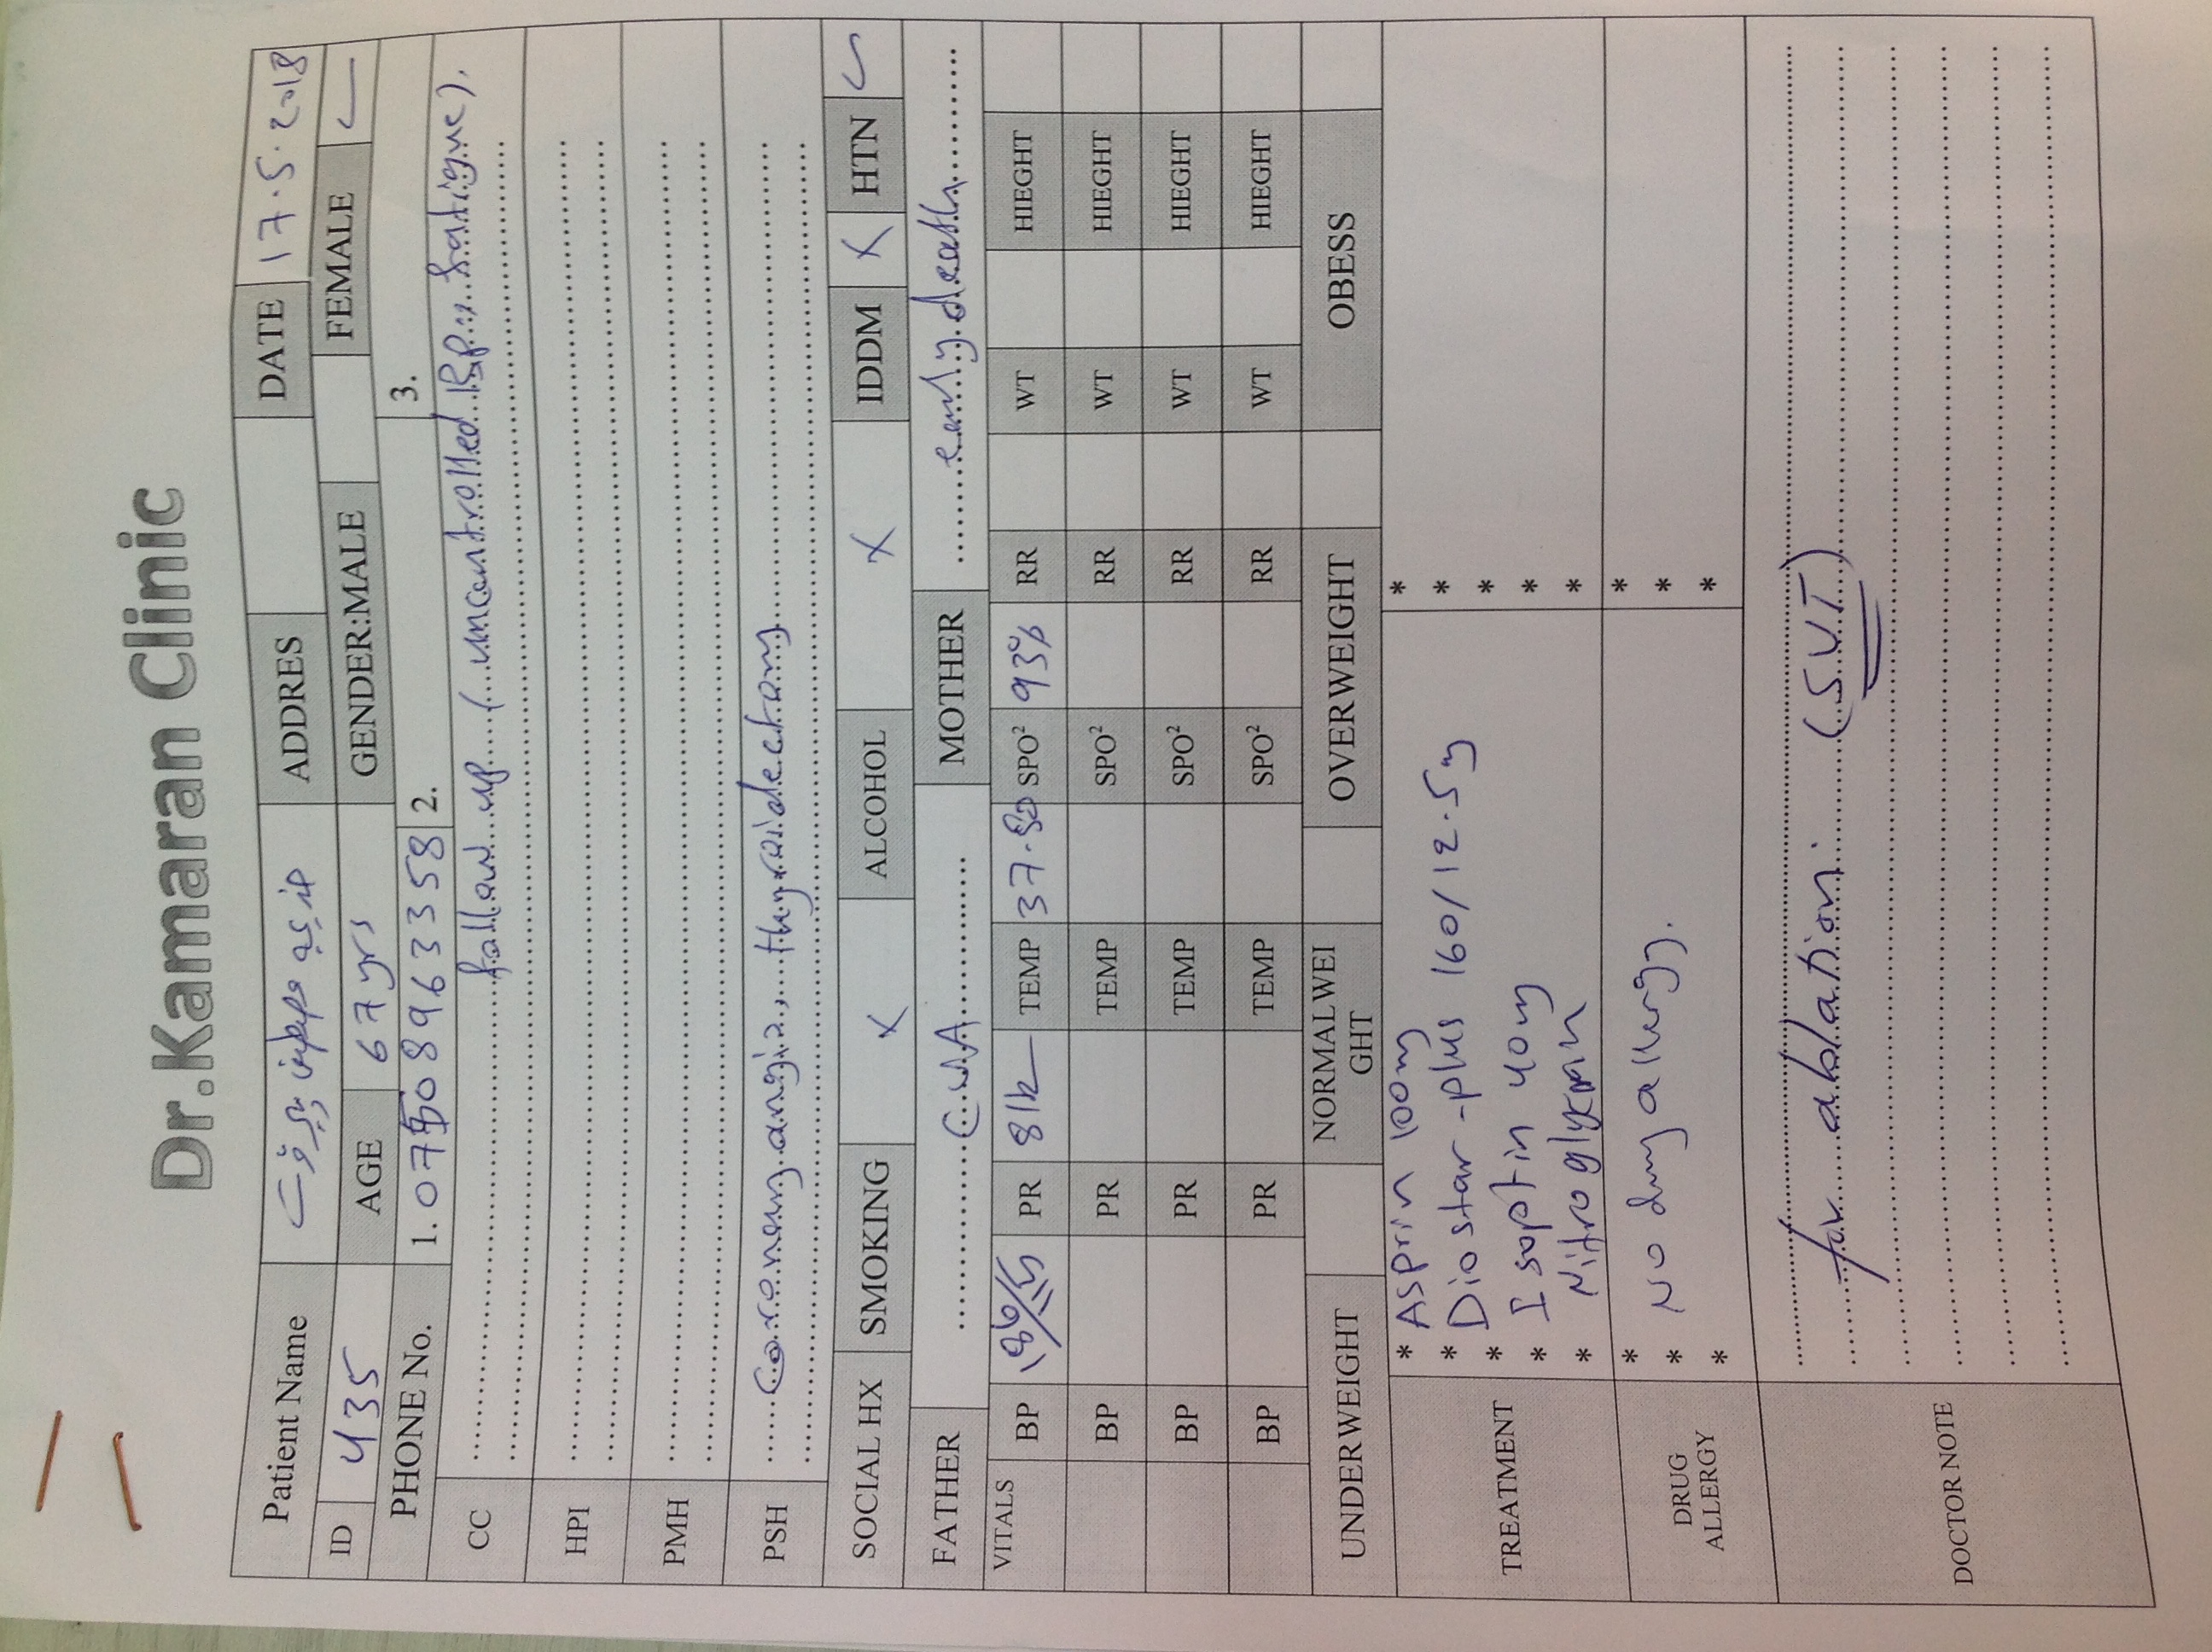 Dr.Kamaran Clinic
Patient Name ADDRES DATE 17.5.2018
ID 435 AGE 67 yrs GENDER:MALE FEMALE ✓
PHONE No. 1. 2. 3.
CC follow up (uncontrolled Bp, fatigue).
HPI
PMH
PSH Coronary angio, thyroidectomy
SOCIAL HX SMOKING X ALCOHOL X IDDM X HTN ✓
FATHER C.V.A MOTHER early death
VITALS BP PR TEMP SPO² 93% RR WT HIEGHT
BP PR TEMP SPO² RR WT HIEGHT
BP PR TEMP SPO² RR WT HIEGHT
BP PR TEMP SPO² RR WT HIEGHT
UNDERWEIGHT NORMALWEI GHT OVERWEIGHT OBESS
TREATMENT
* Asprin 100mg *
* Diostar-plus 160/12.5mg *
* Isoptin 40mg *
* *
* *
DRUG ALLERGY
* No drug allergy. *
* *
* *
DOCTOR NOTE
for ablation (SVT)